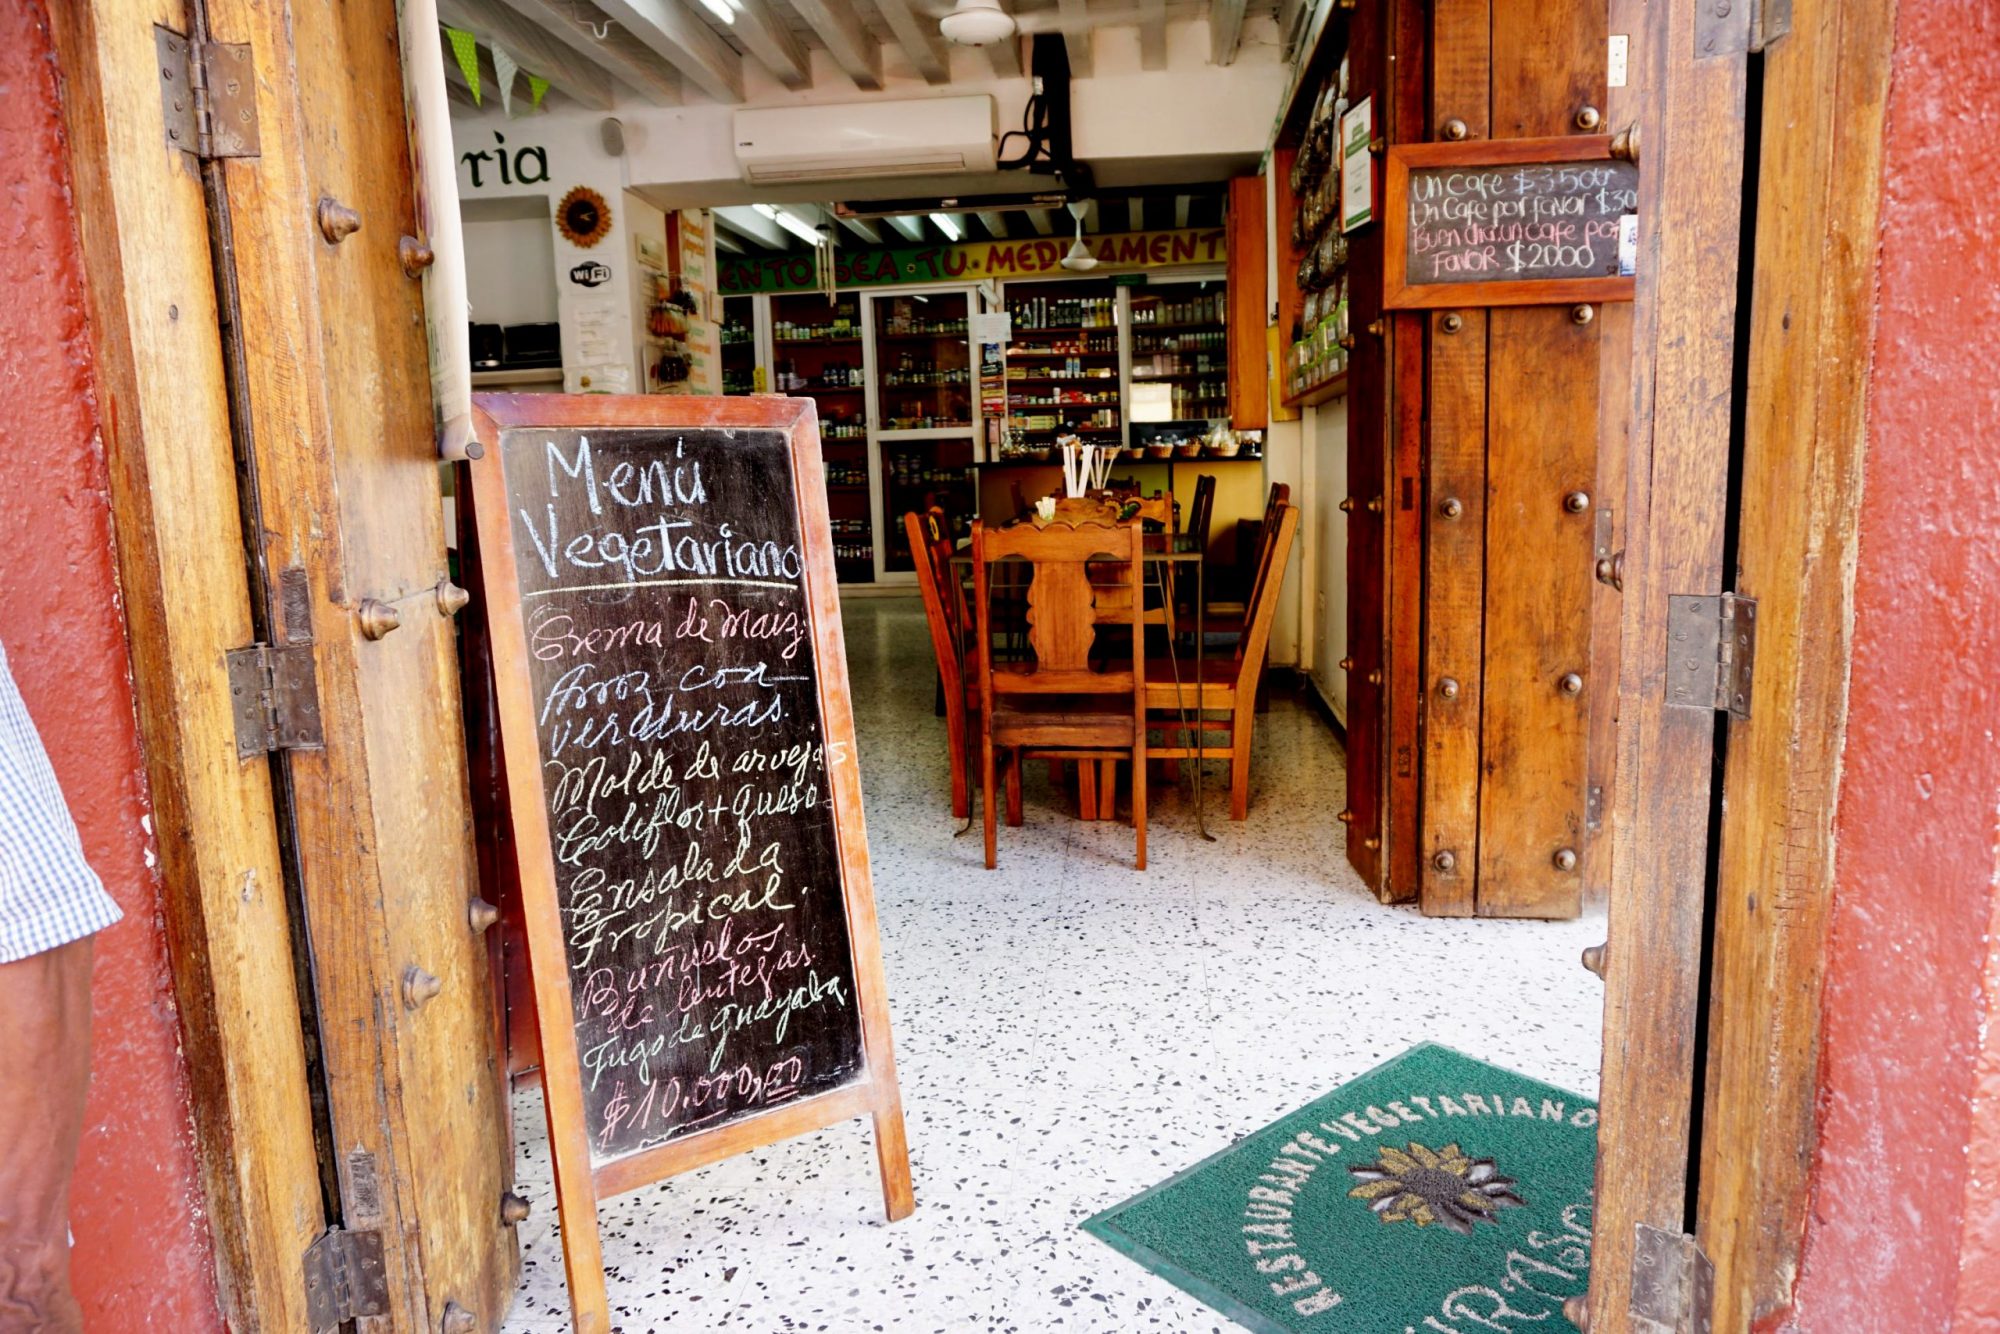 ria
WiFi
ENTO·SEA·TU·MEDICAMENT
Un Cafe $3500
Un Cafe por favor $30
Buen dia un cafe por
FAVOR $2000
Menú
Vegetariano
Crema de Maiz.
Arroz con
verduras.
Molde de arvejas
Coliflor + queso
Ensalada
Tropical.
Buñuelos
de lentejas.
Jugo de guayaba.
$10.000,00
RESTAURANTE VEGETARIANO